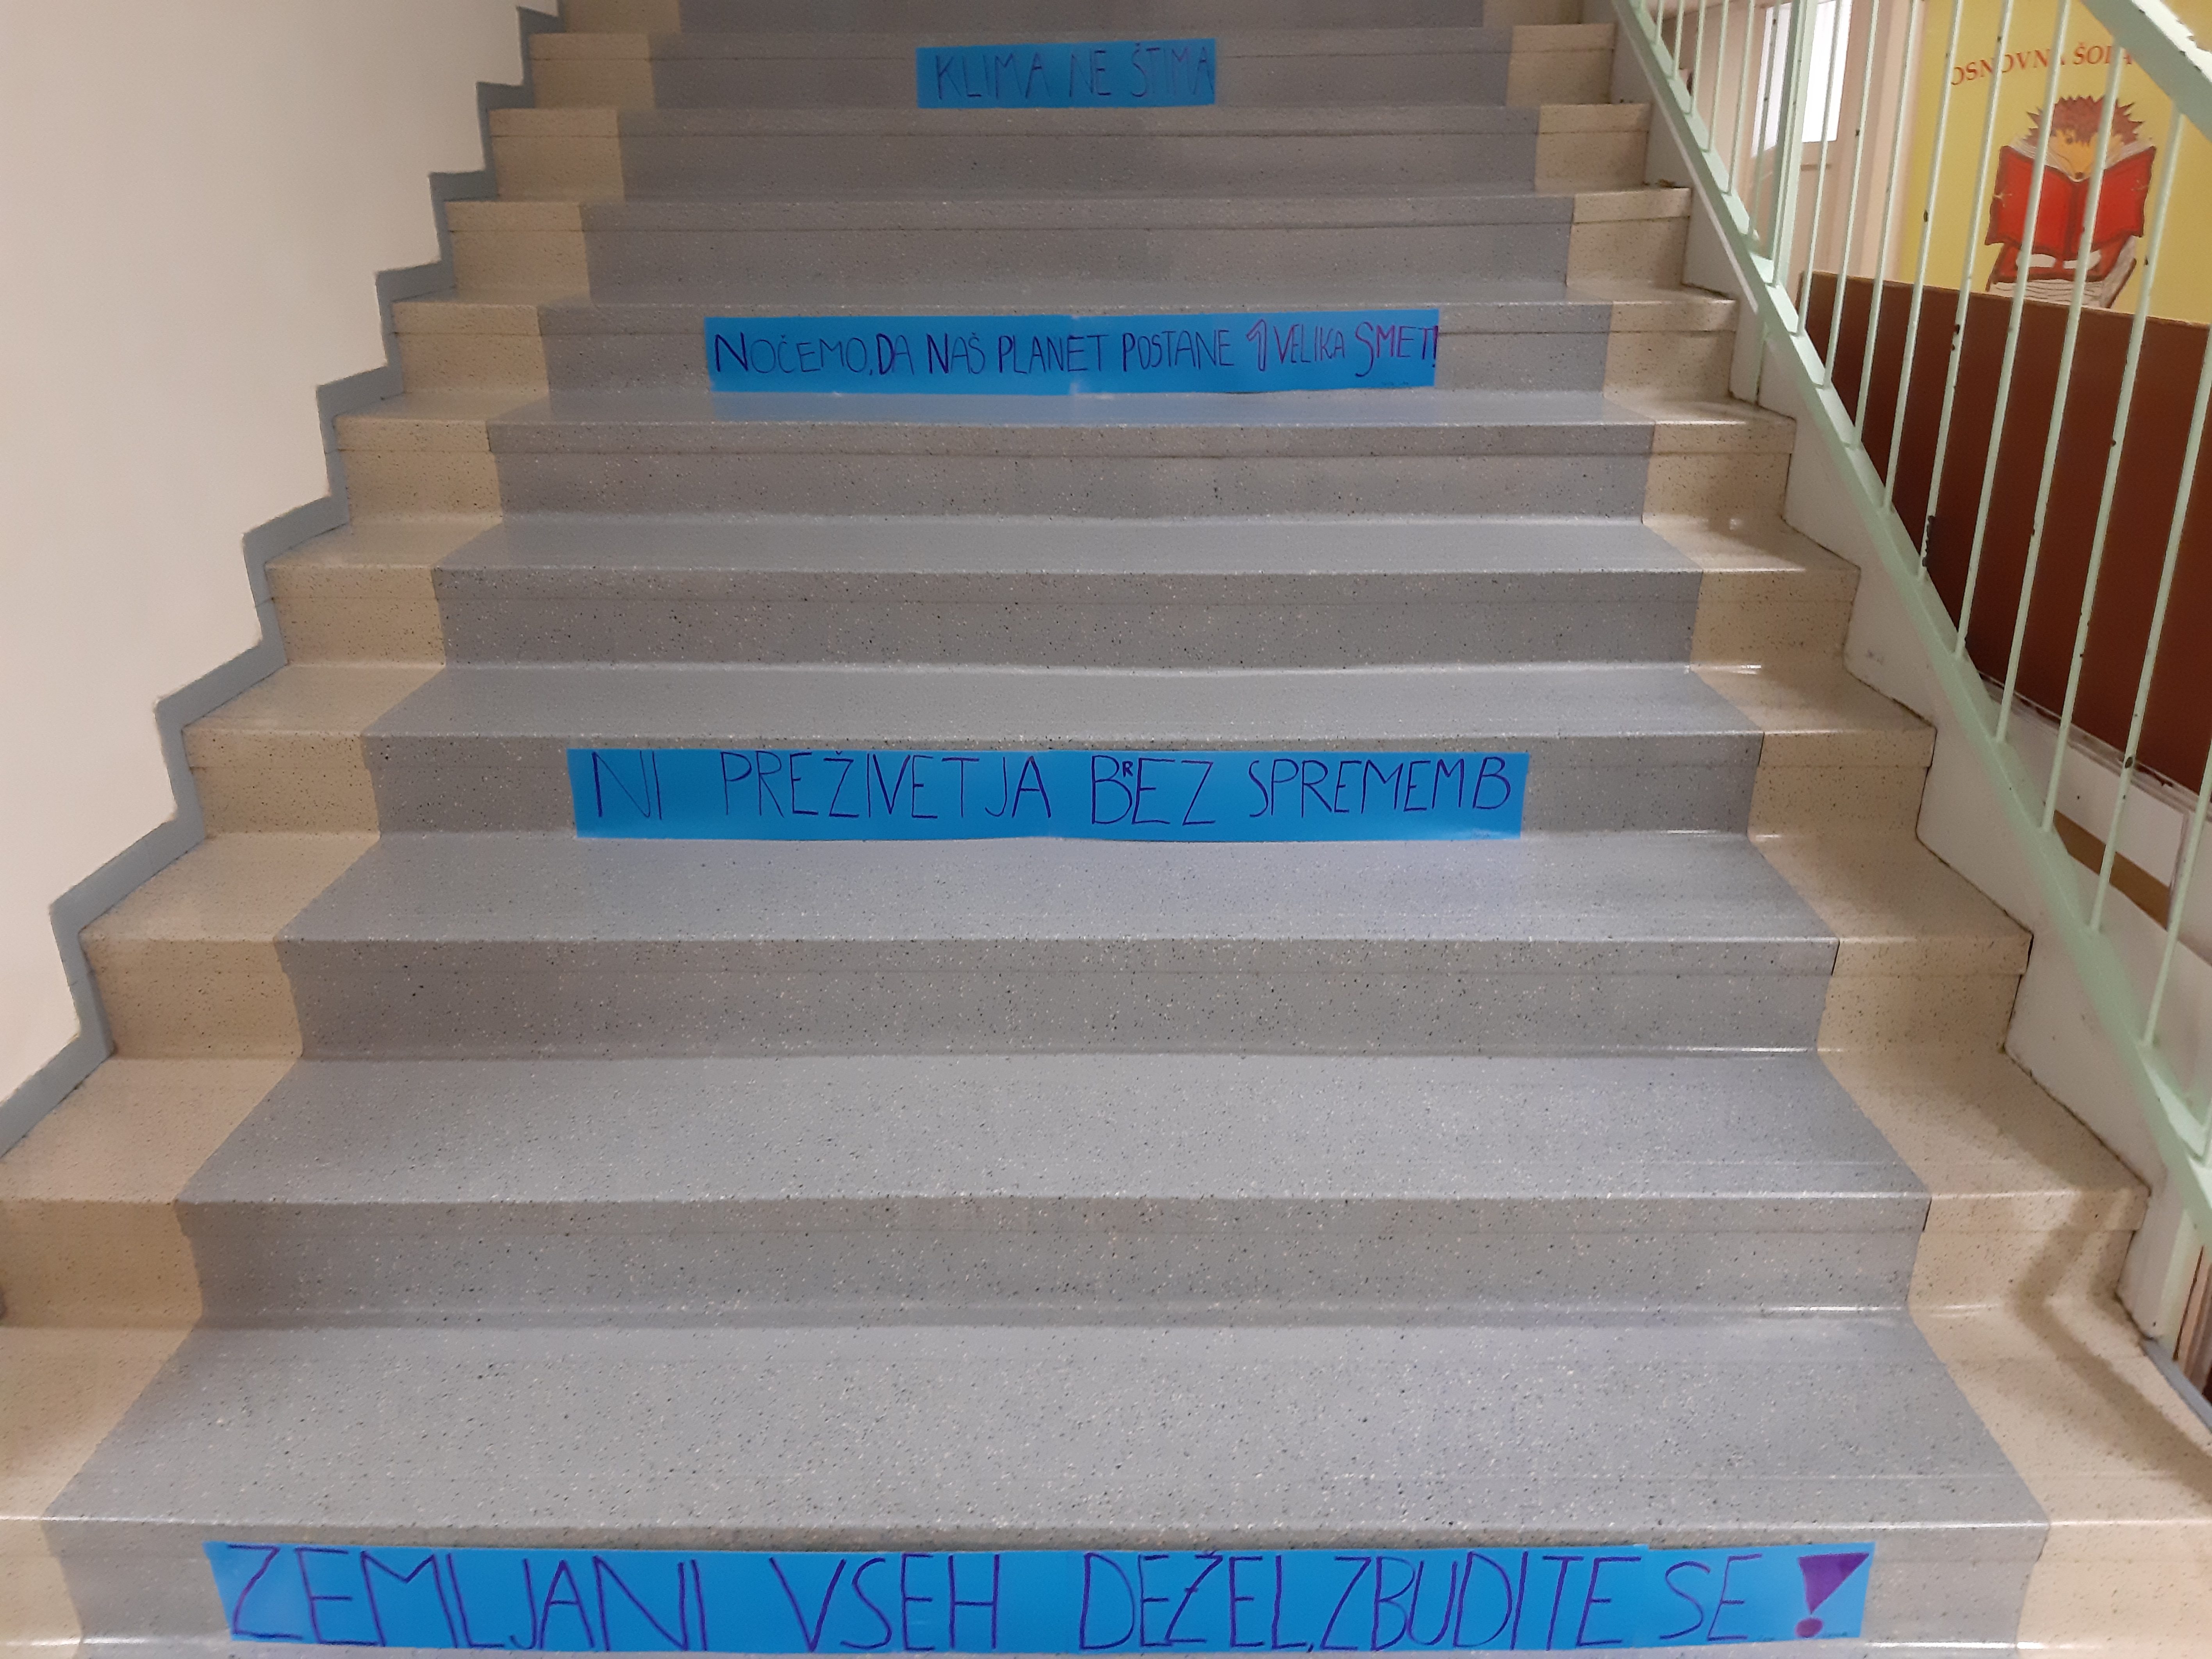 KLIMA NE ŠTIMA
OSNOVNA ŠOLA
NOČEMO, DA NAŠ PLANET POSTANE 1 VELIKA SMET!
NI PREŽIVETJA BREZ SPREMEMB
ZEMLJANI VSEH DEŽEL, ZBUDITE SE!